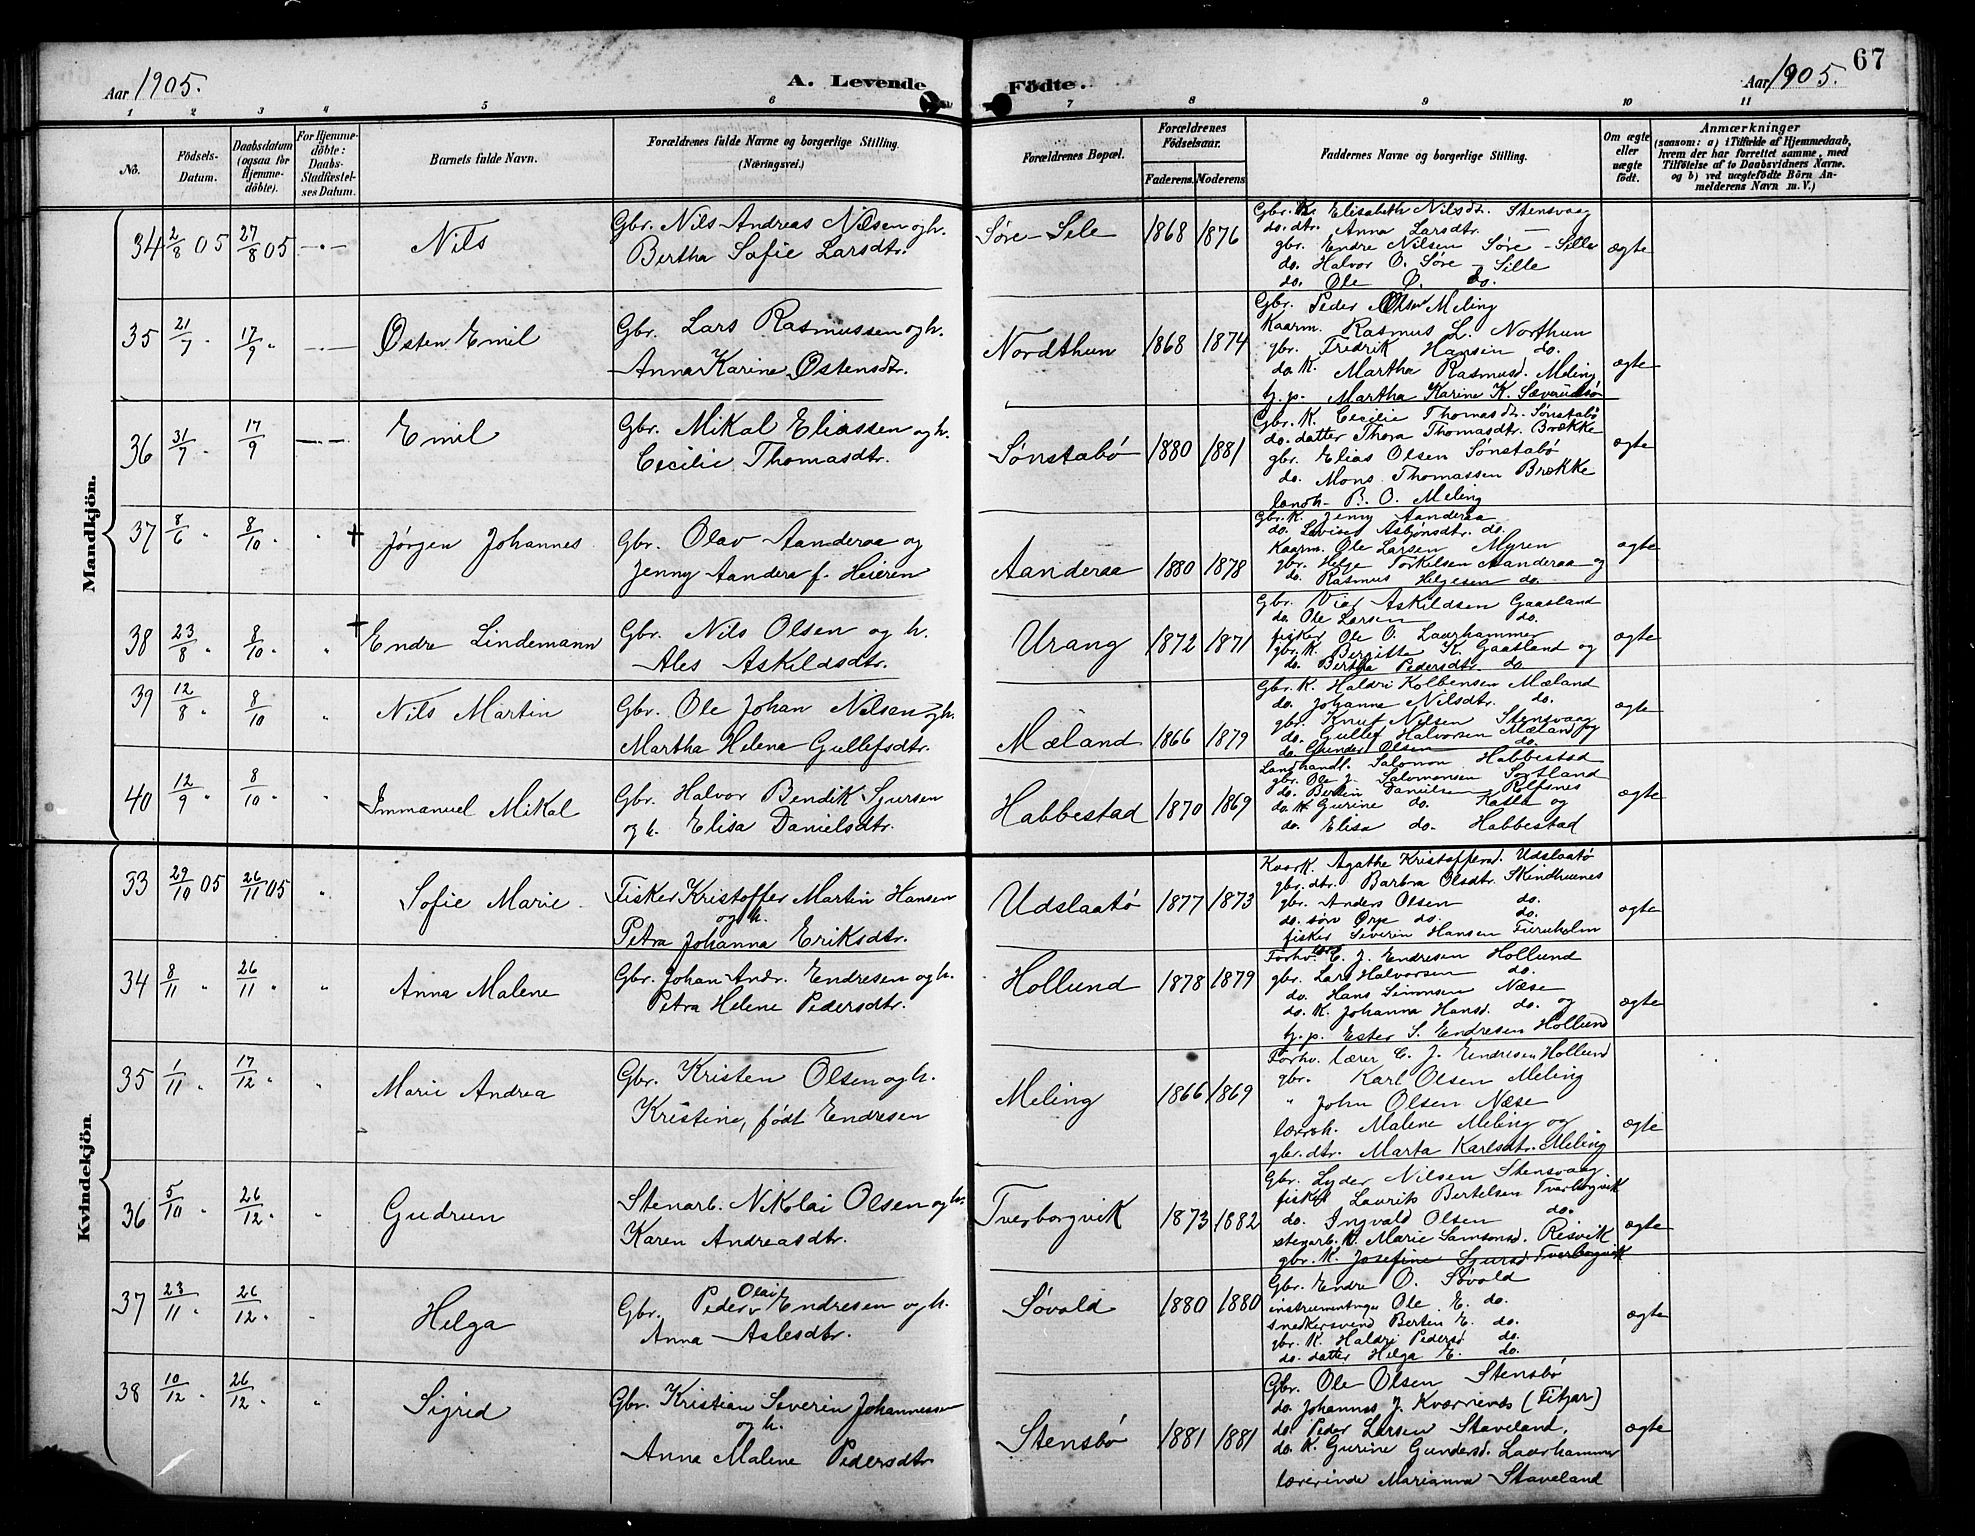 67
Aar 1905. A. Levende Födte. Aar 1905.
1 2 3 4 5 6 7 8 9 10 11
No. Födsels-Datum. Daabsdatum (ogsaa for Hjemme-döbte). For Hjemme-döbte: Daabs-Stadfæstelses Datum. Barnets fulde Navn. Forældrenes fulde Navne og borgerlige Stilling. (Næringsvei.) Forældrenes Bopæl. Forældrenes Födselsaar. Faderens. Moderens. Faddernes Navne og borgerlige Stilling. Om ægte eller uægte födt. Anmærkninger (saasom: a) i Tilfælde af Hjemmedaab, hvem der har forrettet samme, med Tilföielse af to Daabsvidners Navne. og b) ved uægtefödte Börn Anmelderens Navn m. V.)
Mandkjön.
34 2/8 05 27/8 05 Nils
Gbr. Nils Andreas Nilsen og h.
Bertha Sofie Larsdtr.
Søre-Sele 1868 1876
Gbr. K. Elisabeth Nilsdt. Stensvaag
do. dtr. Anna Larsdtr. —
gbr. Endre Nilsen Søre-Sille
do. Halvor O. Søre-Sille
do. Ole O. do.
ægte
35 21/7 17/9 Østen Emil
Gbr. Lars Rasmussen og h.
Anna Karine Østensdtr.
Nordthun 1868 1874
Gbr. Peder Olsen Meling
Kaarm. Rasmus L. Northun
gbr. Fredrik Hansen do.
do. K. Martha Rasmusd. Meling
tj. p. Martha Karine K.
ægte
36 31/7 17/9 Emil
Gbr. Mikal Eliassen og h.
Cecilie Thomasdtr.
Sønstabø 1880 1881
Gbr. K. Cecilie Thomasdt. Sønstabø
do. datter Thora Thomasdtr. Brække
gbr. Elias Olsen Sønstabø
do. Mons Thomassen Brække
B. O. Meling
ægte
37 8/6 " 8/10 " + Jørgen Johannes
Gbr. Olav Aanderaa og
Jenny Aandera f. Heieren
Aanderaa 1880 1878
Gbr. K. Jenny Aanderaa
do. Lovise Asbjønsdtr. do.
Kaarm. Ole Larsen Myren
gbr. Helge Torkelsen Aanderaa og
do. Rasmus Helgesen do.
ægte
38 23/8 " 8/10 " + Endre Lindemann
Gbr. Nils Olsen og h.
Ales Askildsdtr.
Urang 1872 1871
Gbr. Askildsen Gaasland
do. Ole Larsen do.
fisker Ole O. Laurhammer
gbr. K. Bergitte K. Gaasland og
do. Bertha Pedersdtr. do.
ægte
39 12/8 " 8/10 " Nils Martin
Gbr. Ole Johan Nilsen og h.
Martha Helena Gullefsdtr.
Mæland 1866 1879
Gbr. K. Haldri Kolbensen Mæland
do. Johanna Nilsdtr. do.
gbr. Knut Nilsen Stensvaag
do. Gullef Halvorsen Mæland og
do. Gunder Olsen do.
ægte
40 12/9 " 8/10 " Immanuel Mikal
Gbr. Halvor Bendik Sjursen
og h. Elisa Danielsdtr.
Habbestad 1870 1869
Landhandl. Salomon Habbestad
gbr. Ole J. Salomonsen Sortland
do. Berten Danielsen Rolfsnes
do. K. Gurine do. Katla og
do. Elisa do. Habbestad
ægte
Kvindekjön
33 29/10 05 26/11 05 " Sofie Marie
Fisker Kristoffer Martin Hansen
og h.
Petra Johanna Eriksdtr.
Udslaatø 1877 1873
Agathe Kristoffersd. Udslaatø
gbr. dtr. Barbra Olsdtr. Skindhuenes
gbr. Anders Olsen do.
do. søn Ørje do. do.
fisker Severin Hansen Furuholm
ægte
34 8/11 " 26/11 " " Anna Malene
Gbr. Johan Andr. Endresen og h.
Petra Helene Pedersdtr.
Hollund 1878 1879
Forhv. lær. C. J. Endresen Hollund
gbr. Lars Halvorsen do.
do. Hans Simonsen Næse
do. K. Johanna Hansd. do. og
tj. p. Ester S. Endresen Hollund
ægte
35 1/11 " 17/12 " " Marie Andrea
Gbr. Kristen Olsen og h.
Kristine, født Endresen
Meling 1866 1869
Forhv. lærer C. J. Endresen Hollund
gbr. Karl Olsen Meling
" John Olsen Næse
Malene Meling og
gbr. dtr. Marta Karlsdtr. Meling
ægte
36 5/10 " 26/12 " " Gudrun
Stenarb. Nikolai Olsen og h.
Karen Andreasdtr.
Tverborgvik 1873 1882
Gbr. Lyder Nilsen Stensvaag
fisker Laurits Bertelsen Tverborgvik
do. Ingvald Olsen do.
stenarb. K. Marie Samsonsd. Resvik
gbr. K. Josefine Sjursd. Tverborgvik
ægte
37 23/11 " 26/12 " " Helga
Olai
Gbr. Peder Endresen og h.
Anna Aslesdtr.
Søvold 1880 1880
Gbr. Endre O. Søvold
Ole E. do.
snedkersvend Berten E. do.
gbr. K. Haldri Pedersd. do.
do. datter Helga E. do.
ægte
38 10/12 " 26/12 " " Sigrid
Gbr. Kristian Severin Johannessen
og h.
Anna Malene Pedersdtr.
Stensbø 1881 1881
Gbr. Ole Olsen Stensbø
do. Johannes J. Kværnenes (Fitjar)
do. Peder Larsen Staveland
do. K. Gurine Gundersd. Laurhammer
lærerinde Marianna Staveland
ægte